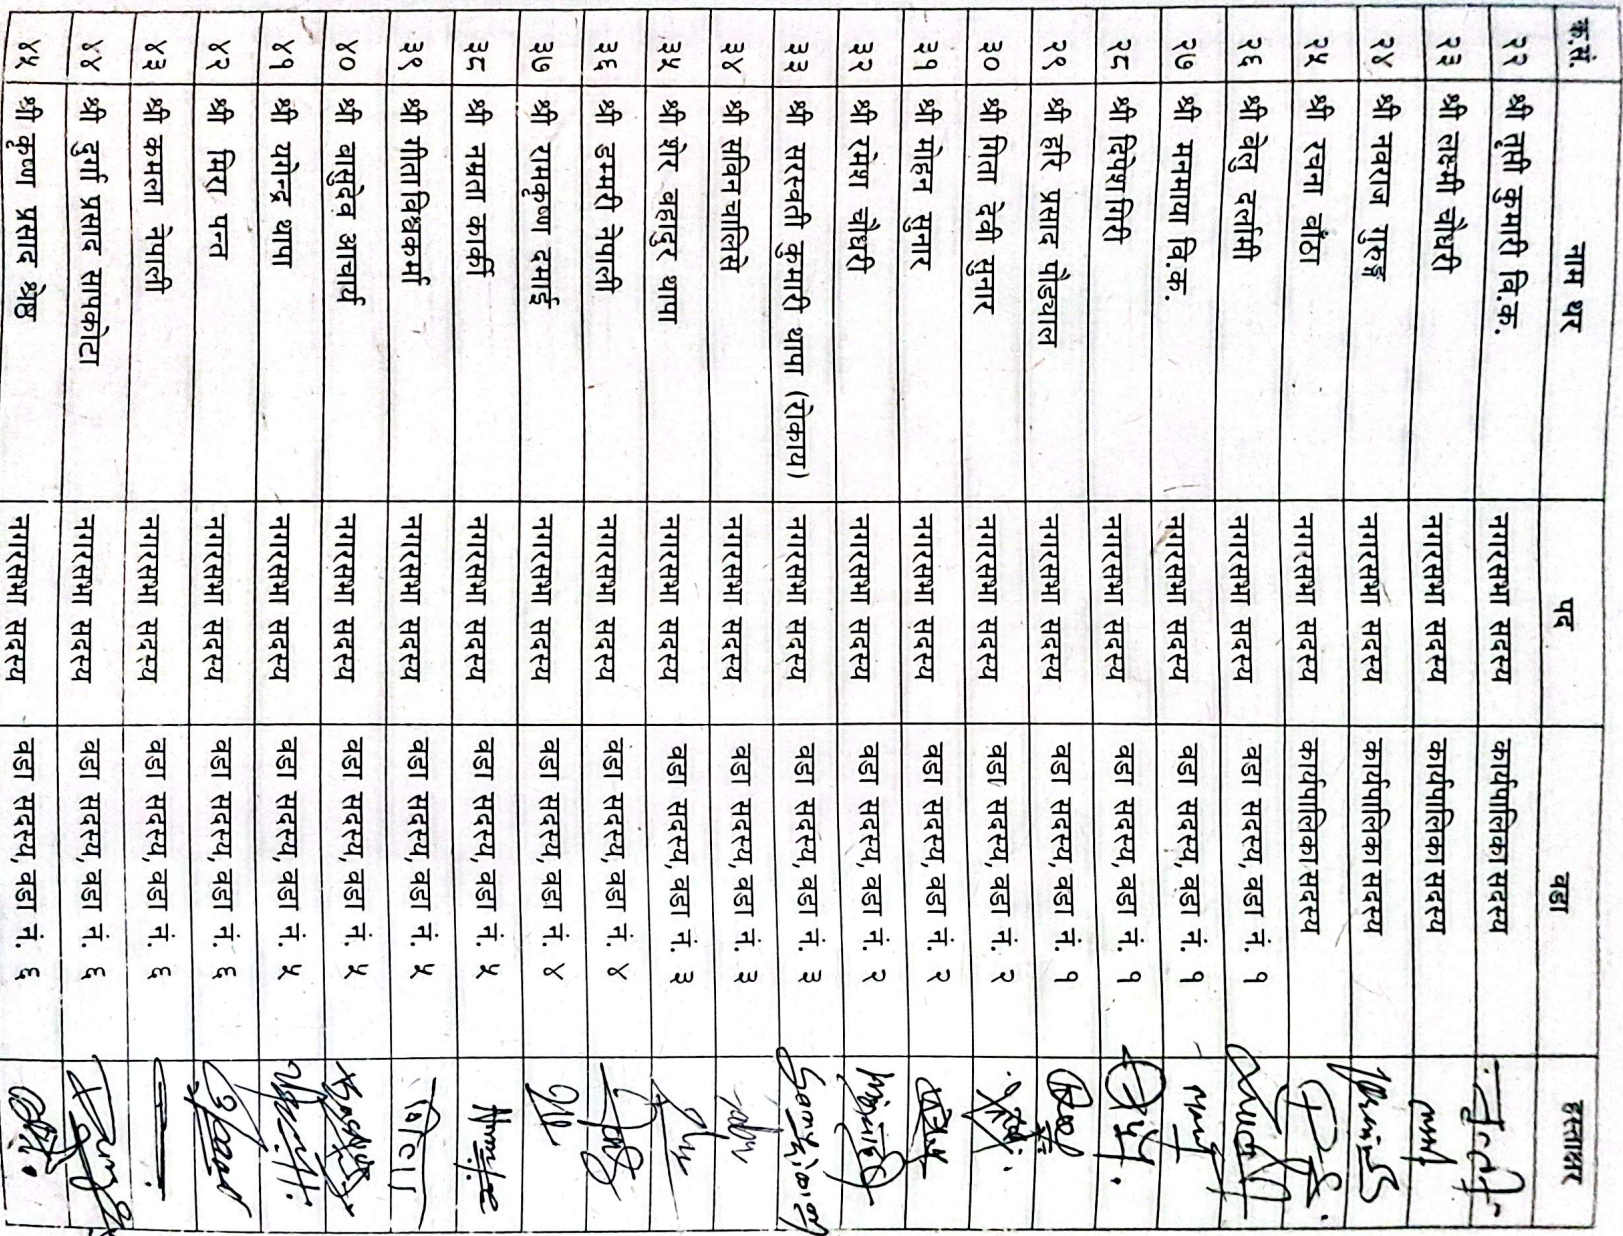 क.सं. नाम थर पद वडा हस्ताक्षर
२२ श्री तुसी कुमारी वि.क. नगरसभा सदस्य कार्यपालिका सदस्य
२३ श्री लक्ष्मी चौधरी नगरसभा सदस्य कार्यपालिका सदस्य
२४ श्री नवराज गुरुङ्ग नगरसभा सदस्य कार्यपालिका सदस्य
२५ श्री रचना वंठा नगरसभा सदस्य कार्यपालिका सदस्य
२६ श्री वेलु दर्लामी नगरसभा सदस्य वडा सदस्य, वडा नं. १
२७ श्री मनमाया वि.क. नगरसभा सदस्य वडा सदस्य, वडा नं. १
२८ श्री दिपेश गिरी नगरसभा सदस्य वडा सदस्य, वडा नं. १
२९ श्री हरि प्रसाद पौडयाल नगरसभा सदस्य वडा सदस्य, वडा नं. १
३० श्री गिता देवी सुनार नगरसभा सदस्य वडा सदस्य, वडा नं. २
३१ श्री मोहन सुनार नगरसभा सदस्य वडा सदस्य, वडा नं. २
३२ श्री रमेश चौधरी नगरसभा सदस्य वडा सदस्य, वडा नं. २
३३ श्री सरस्वती कुमारी थापा (रोकाय) नगरसभा सदस्य वडा सदस्य, वडा नं. ३
३४ श्री सविन चालिसे नगरसभा सदस्य वडा सदस्य, वडा नं. ३
३५ श्री शेर वहादुर थापा नगरसभा सदस्य वडा सदस्य, वडा नं. ३
३६ श्री डम्मरी नेपाली नगरसभा सदस्य वडा सदस्य, वडा नं. ४
३७ श्री रामकृष्ण दमाई नगरसभा सदस्य वडा सदस्य, वडा नं. ४
३८ श्री नम्रता कार्की नगरसभा सदस्य वडा सदस्य, वडा नं. ५
३९ श्री गीता विश्वकर्मा नगरसभा सदस्य वडा सदस्य, वडा नं. ५
४० श्री वासुदेव आचार्य नगरसभा सदस्य वडा सदस्य, वडा नं. ५
४१ श्री यगेन्द्र थापा नगरसभा सदस्य वडा सदस्य, वडा नं. ५
४२ श्री मिरा पन्त नगरसभा सदस्य वडा सदस्य, वडा नं. ६
४३ श्री कमला नेपाली नगरसभा सदस्य वडा सदस्य, वडा नं. ६
४४ श्री दुर्गा प्रसाद सापकोटा नगरसभा सदस्य वडा सदस्य, वडा नं. ६
४५ श्री कृष्ण प्रसाद श्रेष्ठ नगरसभा सदस्य वडा सदस्य, वडा नं. ६